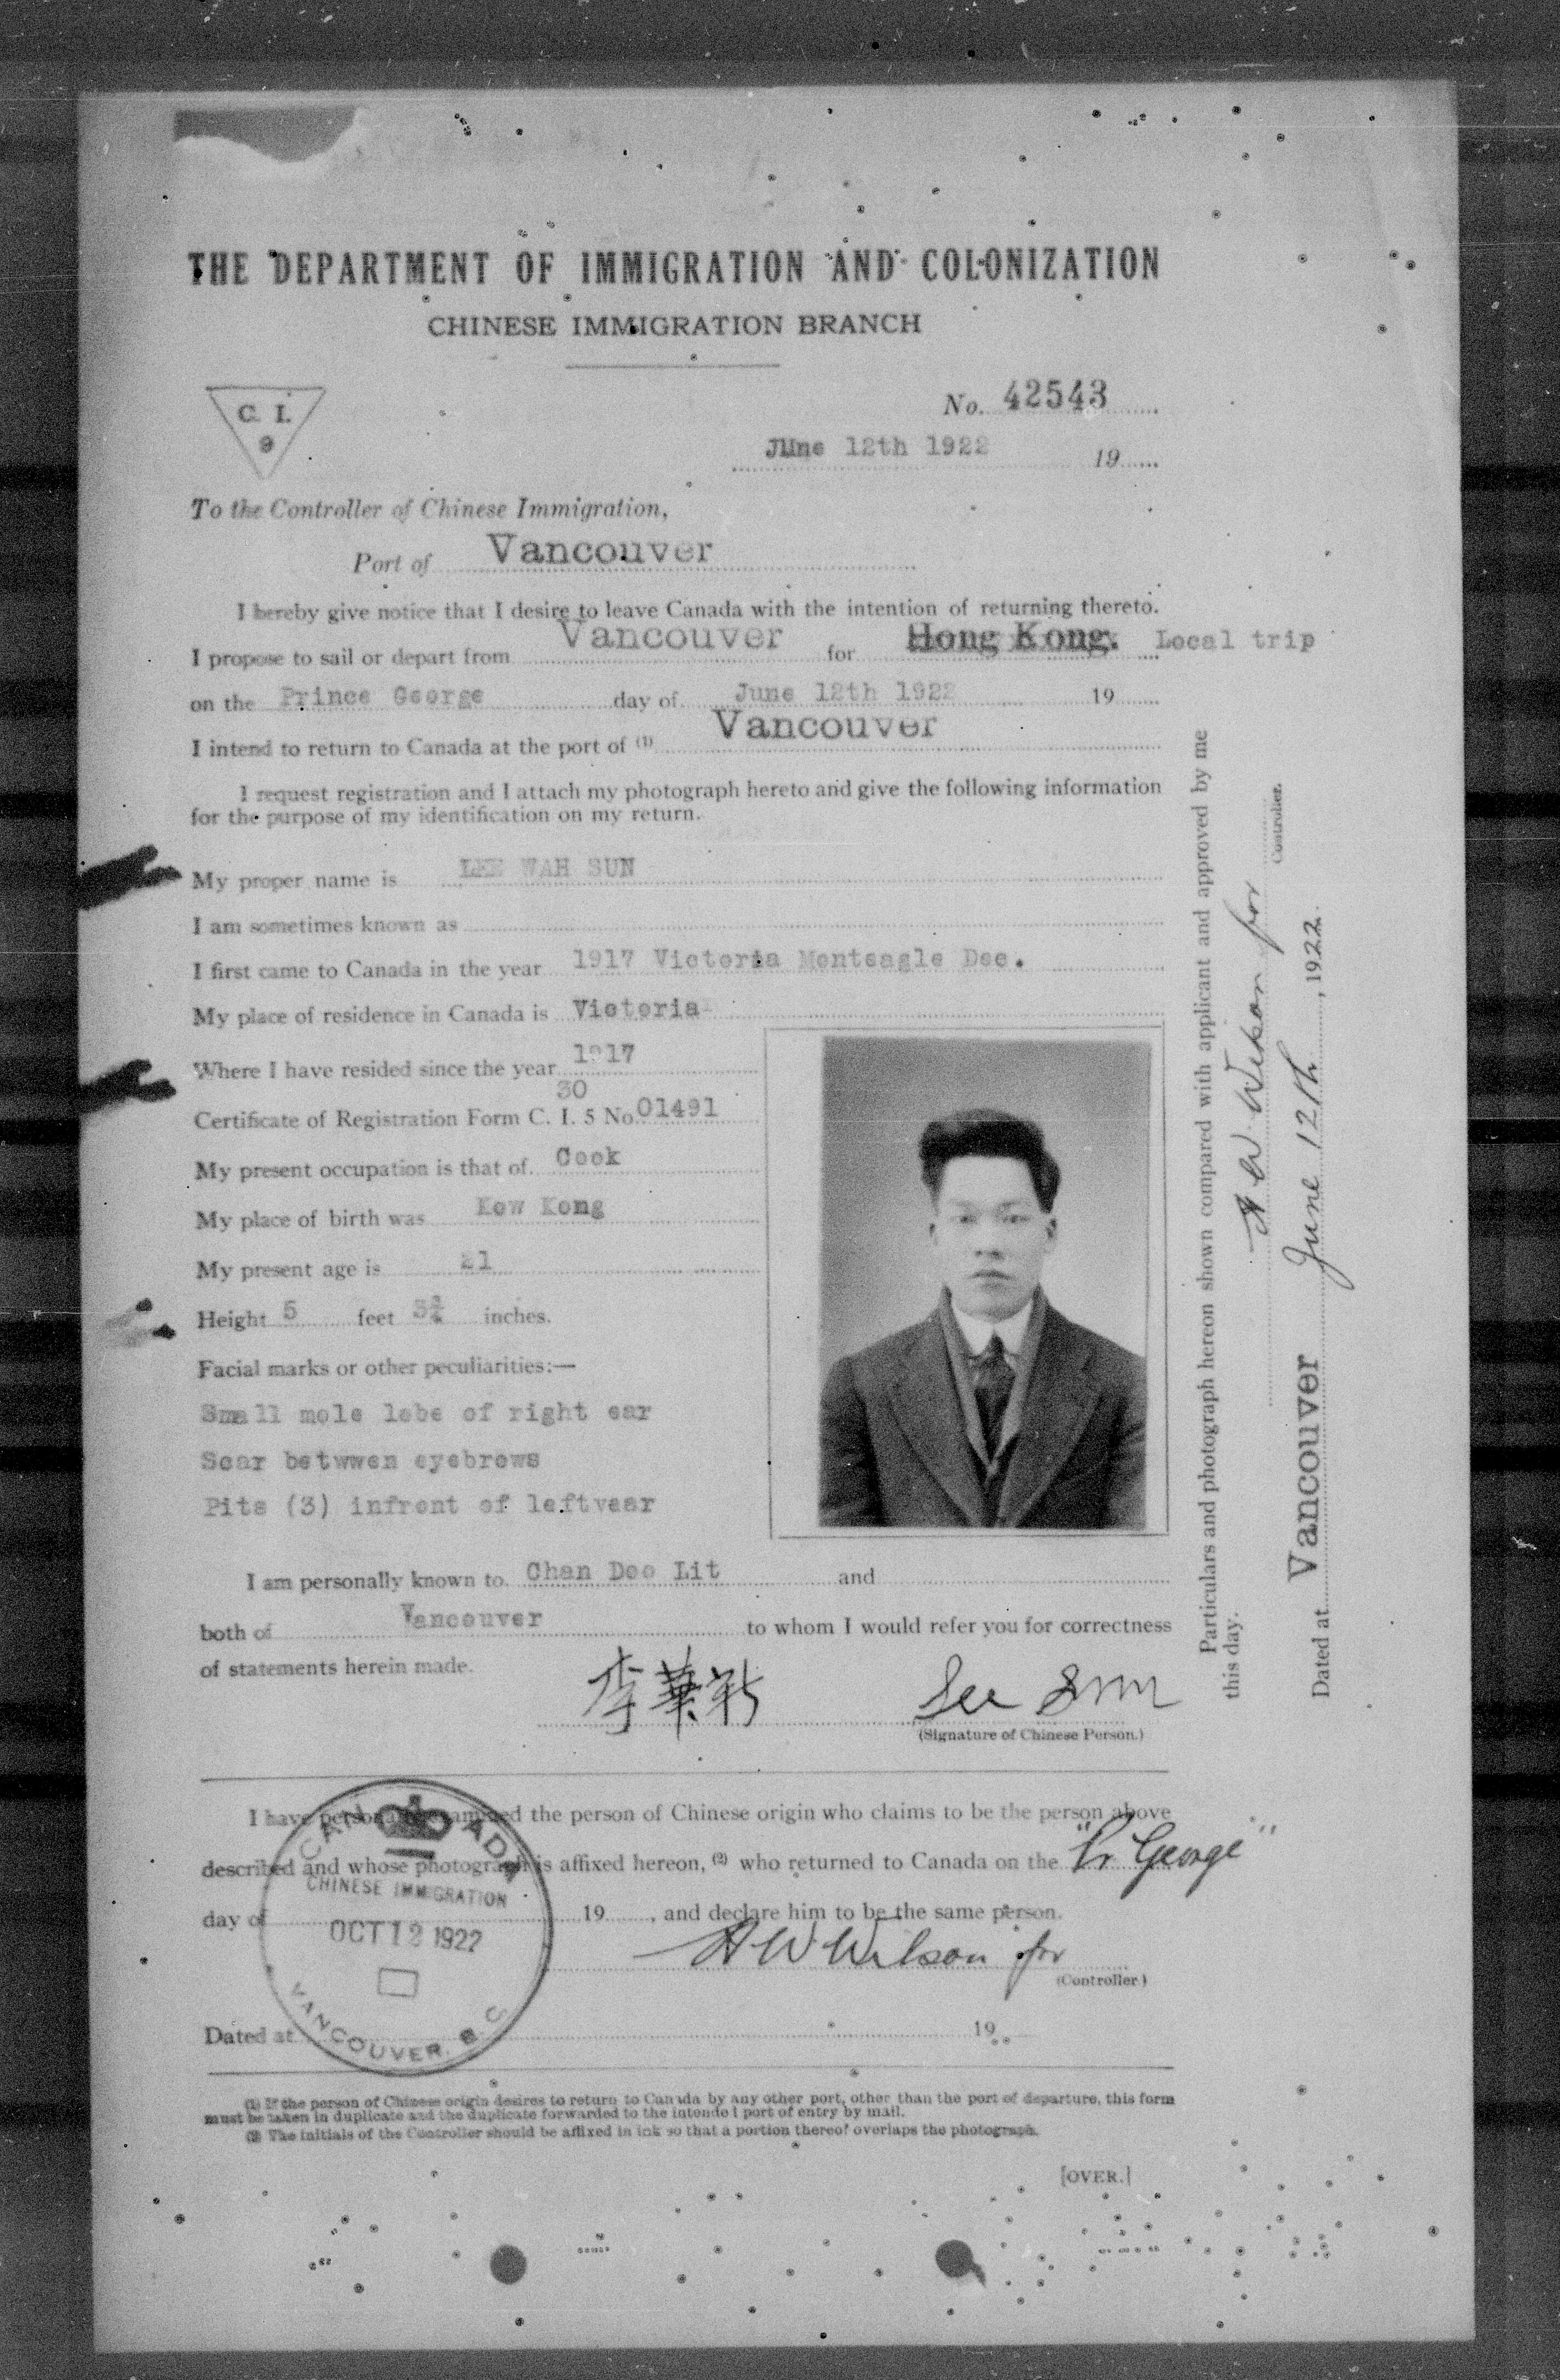 THE DEPARTMENT OF IMMIGRATION AND COLONIZATION
CHINESE IMMIGRATION BRANCH
C. I.
9
No. 42543
June 12th 1922 19
To the Controller of Chinese Immigration,
Port of Vancouver
I hereby give notice that I desire to leave Canada with the intention of returning thereto.
I propose to sail or depart from Vancouver for Hong Kong. Local trip
on the Prince George day of June 12th 1922 19
I intend to return to Canada at the port of (1) Vancouver
I request registration and I attach my photograph hereto and give the following information
for the purpose of my identification on my return.
My proper name is LEE WAH SUN
I am sometimes known as
I first came to Canada in the year 1917 Victoria Monteagle Dec.
My place of residence in Canada is Victoria
Where I have resided since the year 1917
30
Certificate of Registration Form C. I. 5 No. 01491
My present occupation is that of Cook
My place of birth was Kow Kong
My present age is 21
Height 5 feet 3¾ inches.
Facial marks or other peculiarities:—
Small mole lobe of right ear
Scar betwwen eyebrows
Pits (3) infront of leftvear
I am personally known to Chan Doo Lit and
both of Vancouver to whom I would refer you for correctness
of statements herein made.
李華新 Lee Sun
(Signature of Chinese Person.)
I have personally examined the person of Chinese origin who claims to be the person above
described and whose photograph is affixed hereon, (2) who returned to Canada on the "Pr George"
day of 19 , and declare him to be the same person.
A W Wilson for
(Controller)
Dated at 19
CANADA
CHINESE IMMIGRATION
OCT 12 1922
VANCOUVER. B. C.
(1) If the person of Chinese origin desires to return to Canada by any other port, other than the port of departure, this form
must be taken in duplicate and the duplicate forwarded to the intended port of entry by mail.
(2) The initials of the Controller should be affixed in ink so that a portion thereof overlaps the photograph.
[OVER.]
Particulars and photograph hereon shown compared with applicant and approved by me
this day.
A W Wilson for
Controller.
Dated at Vancouver June 12th, 1922.